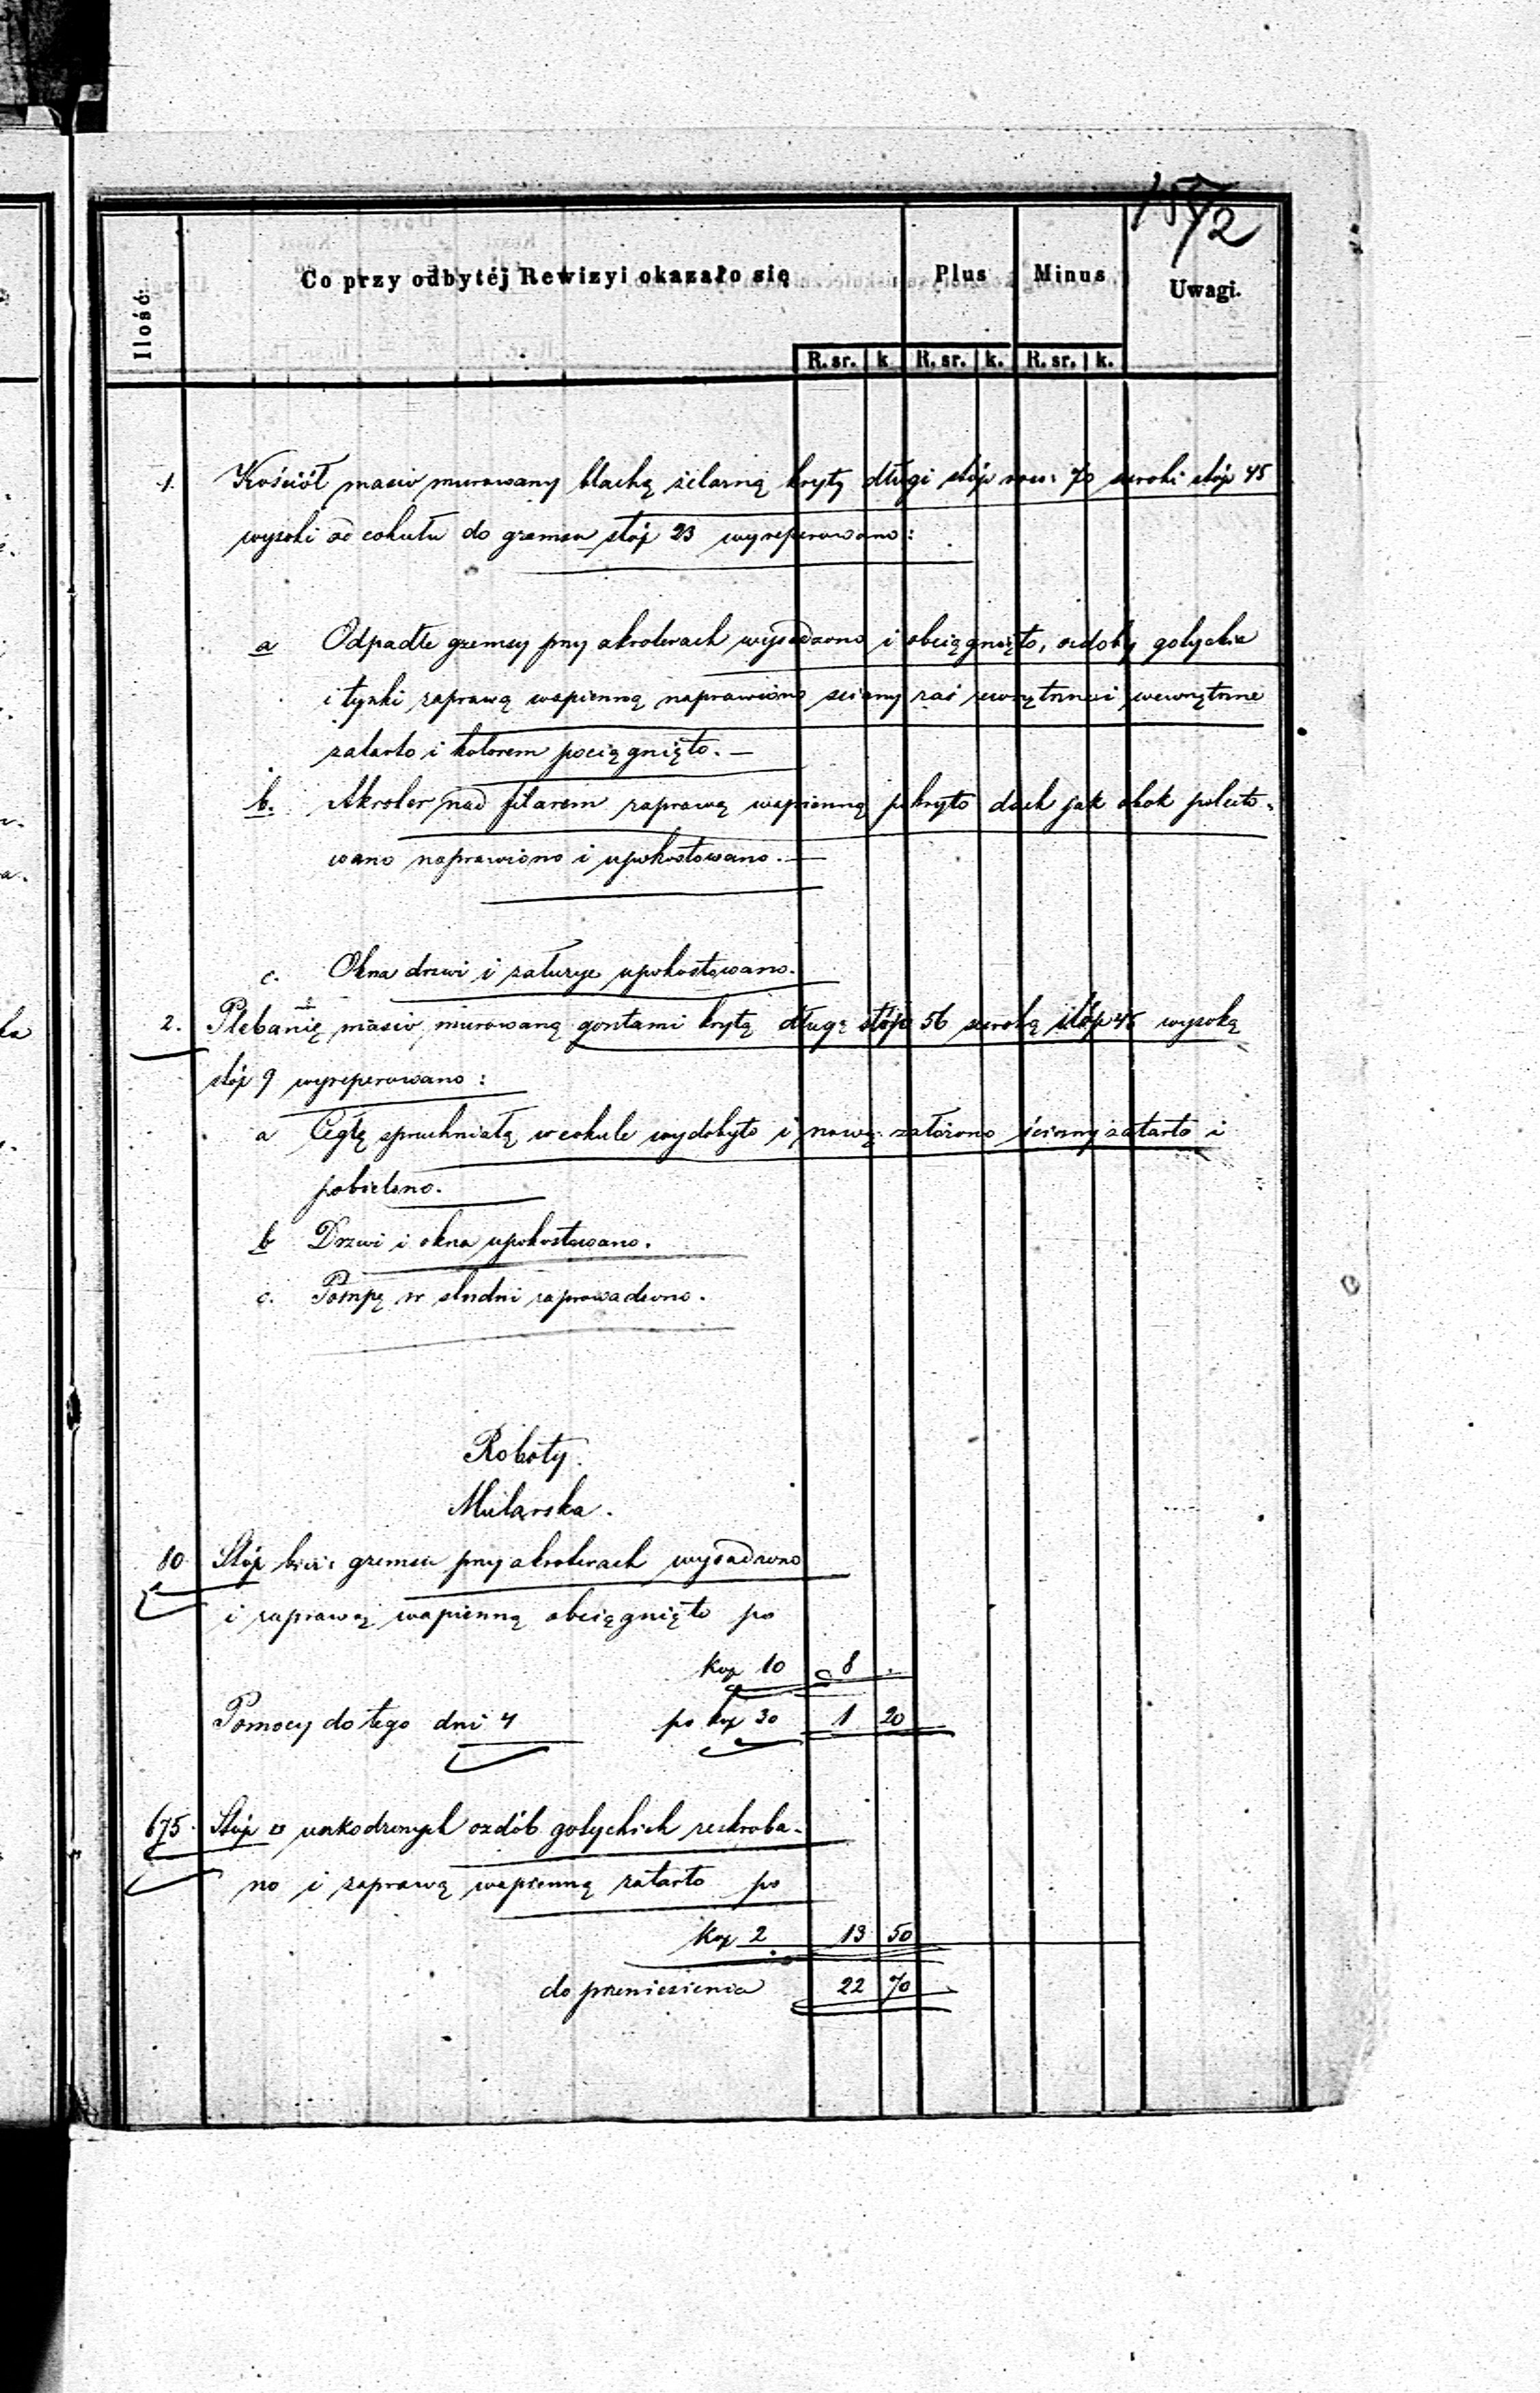 Ilość.
Co przy odbytéj Rewizyi okazało się
Plus
Minus
Uwagi.
R. sr. k. R. sr. k. R. sr. k.
1. Kościół masiv murowany blachą żelazną kryty długi stóp 70 szeroki stóp 45
wysoki od cokułu do gzemsu stóp 23 wyreperowano:
a Odpadłe gzemsy przy akroterach wysadzono i obciągnięto, ozdoby gotyckie
i tynki zaprawą wapienną naprawiono sciany zaś zewnętrzne i wewnętrzne
zatarto i kolorem pociągnięto. —
b. Akroter nad filarem zaprawą wapienną pokryto dach jak obok polecto-
wano naprawiono i upokostowano. —
c. Okna drzwi i żaluzye upokostowano.
2. Plebanię masiv murowaną gontami krytą długą stóp 56 szeroką stóp 45 wysoką
stóp 9 wyreperowano:
a Cegłę spruchniałą w cokule wydobyto i nową założono ściany zatarto i
pobielono.
b Drzwi i okna upokostowano.
c. Pompę w studni zaprowadzono.
Roboty.
Mularska.
80 Stóp bież: gzemsu przy akroterach wysadzono
i zaprawą wapienną obciągnięto po
kop 10 8 .
Pomocy do tego dni 4 po kop 30 1 20
675. Stóp □ uszkodzonych ozdób gotyckich zeskroba-
no i zaprawą wapienną zatarto po
kop 2 13 50
do przeniesienia 22 70